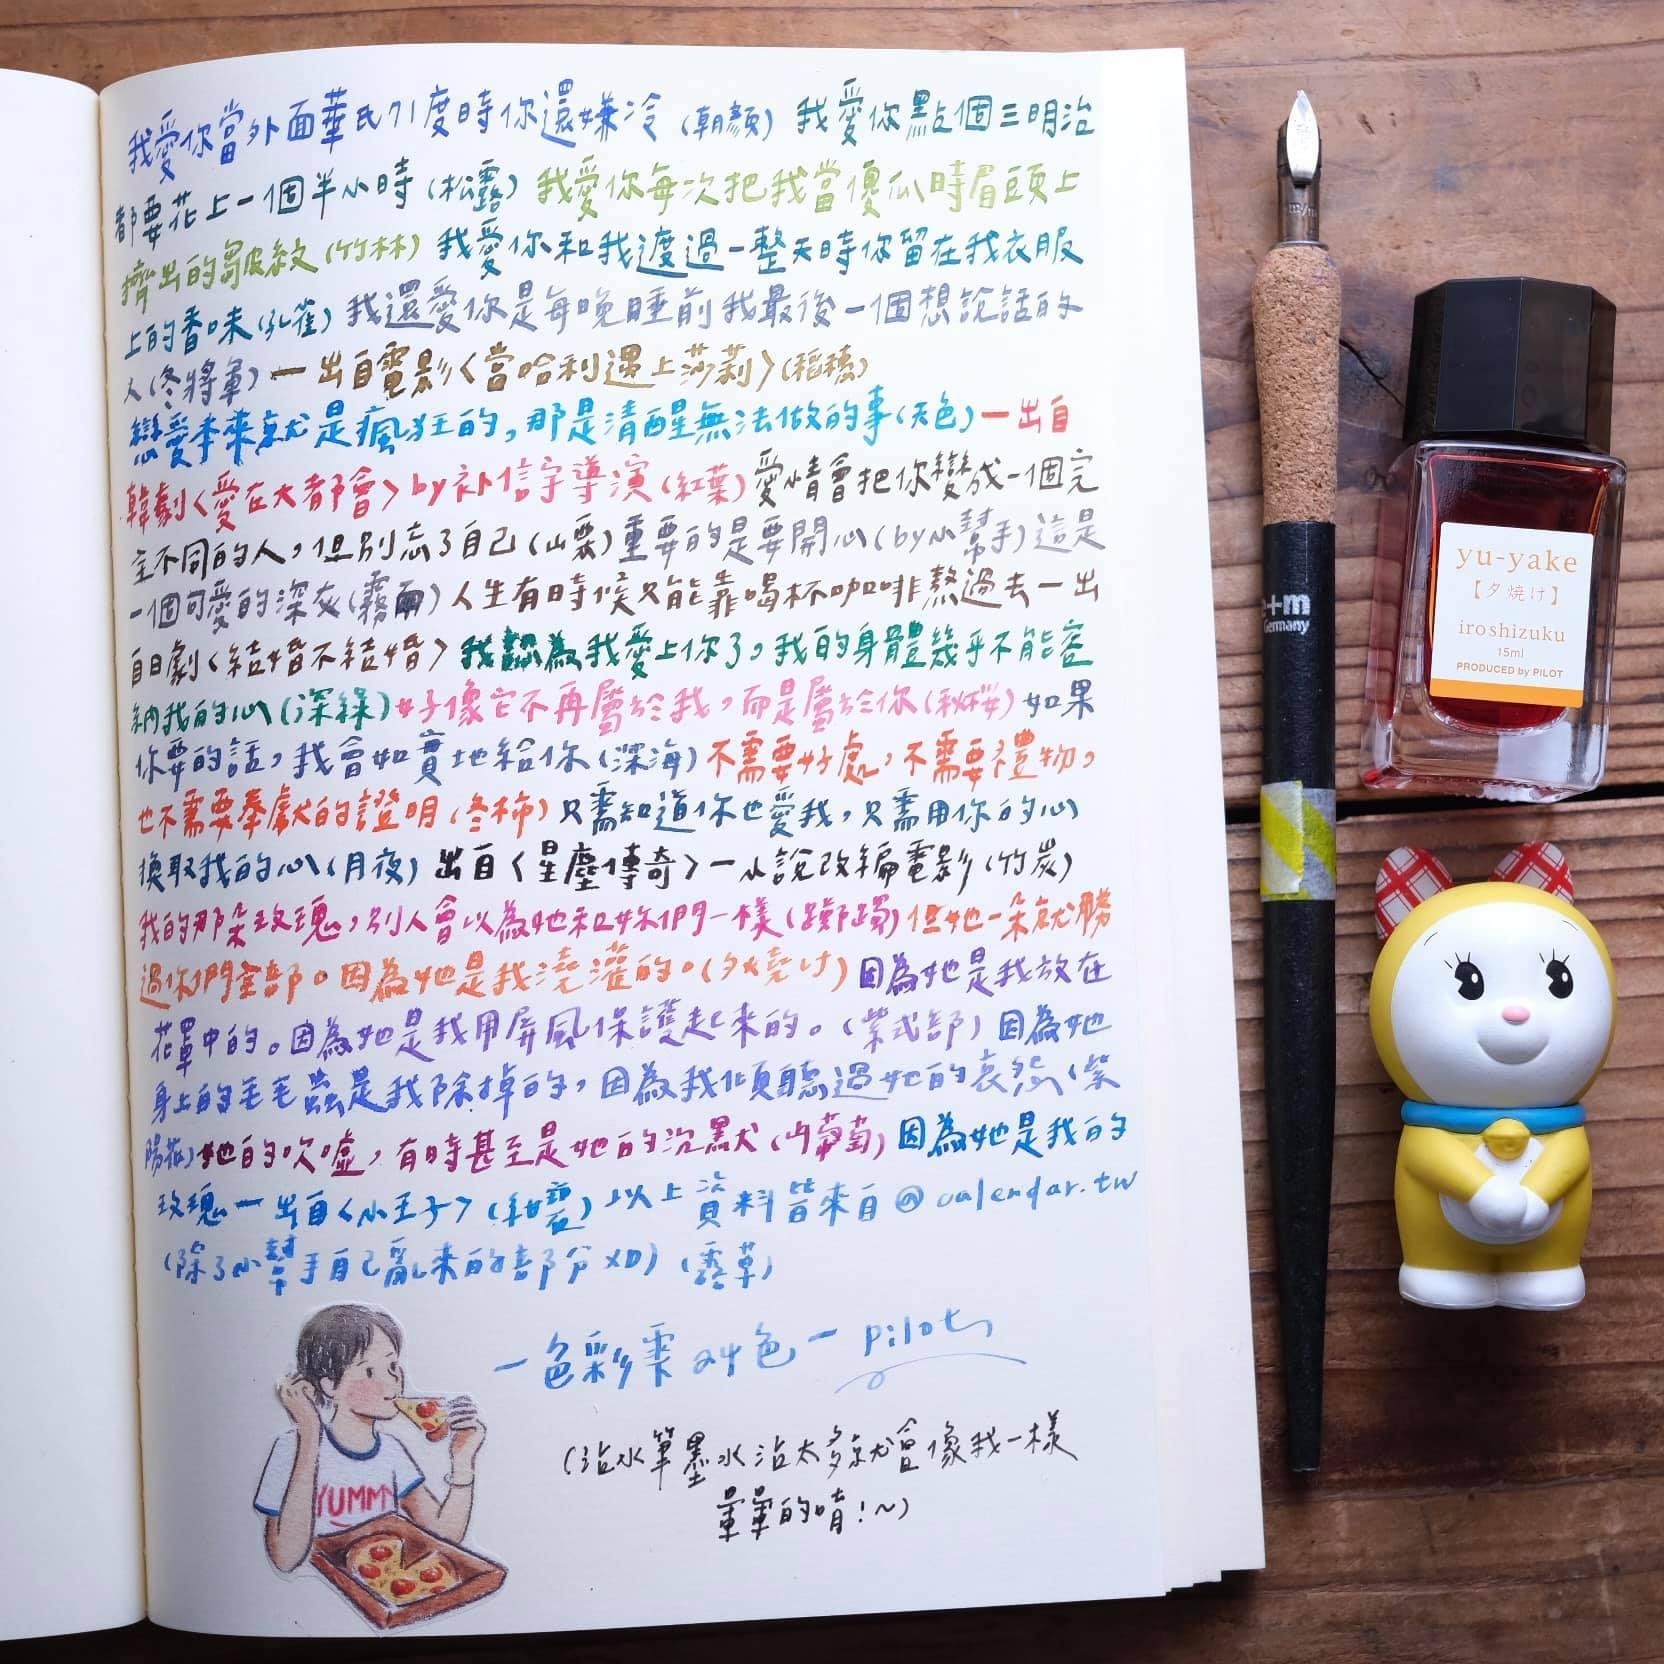 我愛你當外面華氏71度時你還嫌冷(朝顏) 我愛你點個三明治
都要花上一個半小時(松露) 我愛你每次把我當傻瓜時眉頭上
擠出的皺紋(竹林) 我愛你和我渡過一整天時你留在我衣服
上的香味(孔雀) 我還愛你是每晚睡前我最後一個想說話的
人(冬將軍) 一出自電影〈當哈利遇上莎莉〉(稻穗)
戀愛本來就是瘋狂的,那是清醒無法做的事(天色) 一出自
韓劇〈愛在大都會〉by 朴信宇導演(紅葉) 愛情會把你變成一個完
全不同的人,但別忘了自己(山栗) 重要的是要開心(by小幫手)這是
一個可愛的深灰(霧雨) 人生有時候只能靠喝杯咖啡熬過去一出
自日劇〈結婚不結婚〉 我認為我愛上你了。我的身體幾乎不能容
納我的心(深綠) 好像它不再屬於我,而是屬於你(秋桜) 如果
你要的話,我會如實地給你(深海) 不需要好處,不需要禮物,
也不需要奉獻的證明(冬柿) 只需知道你也愛我,只需用你的心
換取我的心(月夜) 出自〈星塵傳奇〉一小說改編電影(竹炭)
我的那朵玫瑰,別人會以為她和妳們一樣(躑躅) 但她一朵就勝
過你們全部。因為她是我澆灌的。(夕燒け) 因為她是我放在
花罩中的。因為她是我用屏風保護起來的。(紫式部) 因為她
身上的毛毛蟲是我除掉的,因為我傾聽過她的哀怨(紫
陽花) 她的吹噓,有時甚至是她的沉默(山葡萄) 因為她是我的
玫瑰一出自〈小王子〉(紺碧) 以上資料皆來自@calendar.tw
(除了小幫手自己亂來的部分XD)(露草)
一色彩雫24色一 pilot
(沾水筆墨水沾太多就會像我一樣
暈暈的唷!~)
YUMMY
e+m
Germany
yu-yake
【夕焼け】
iroshizuku
15ml
PRODUCED by PILOT